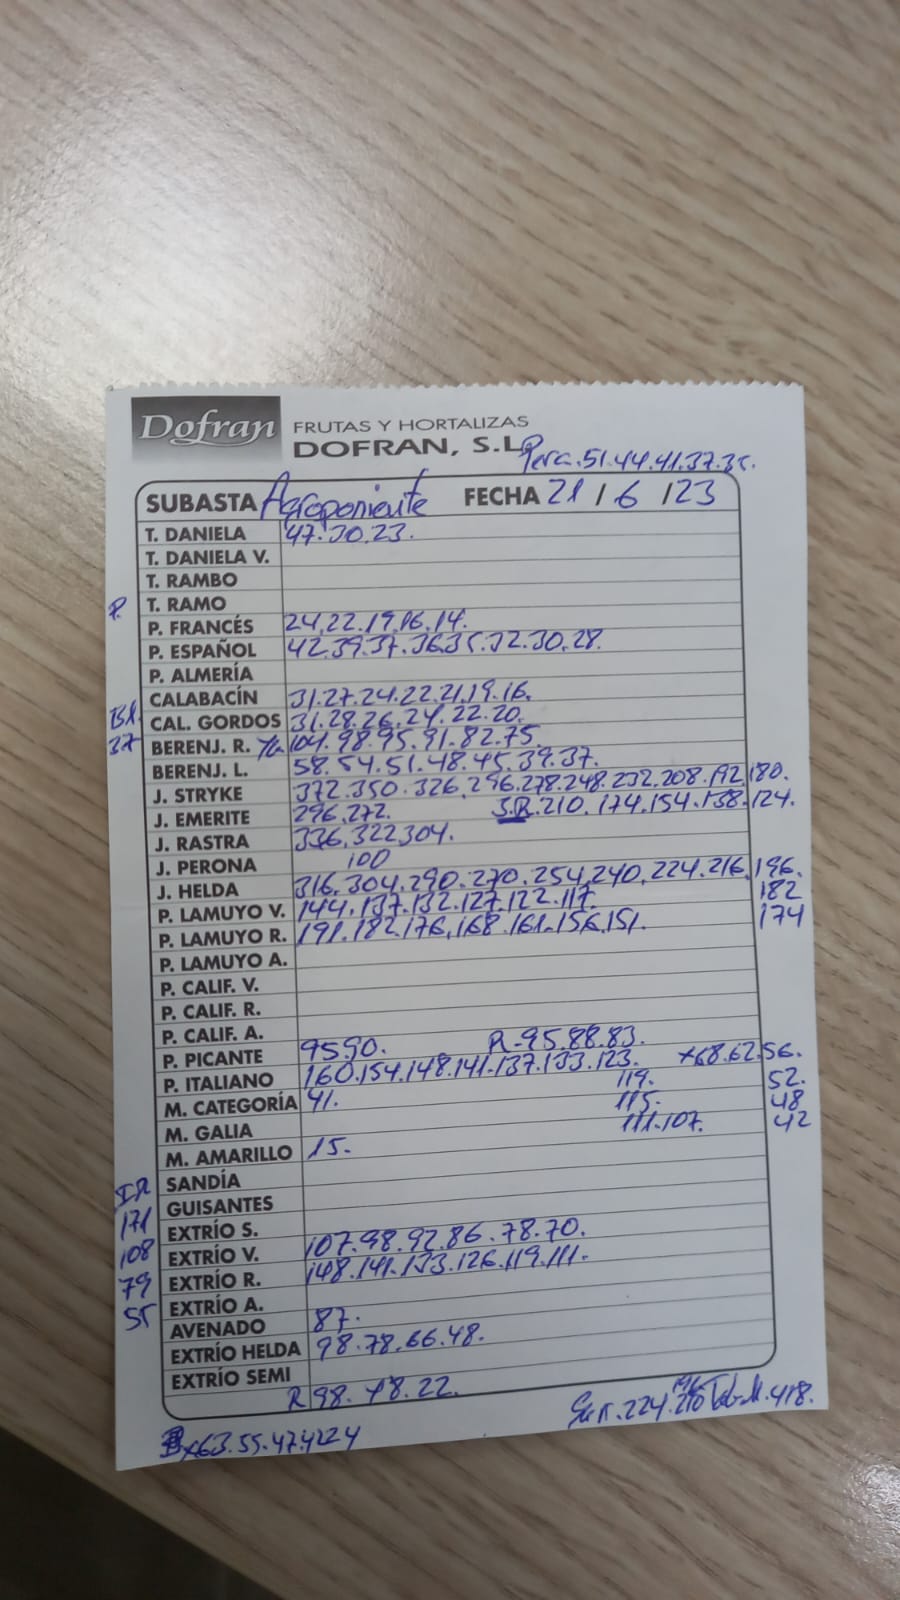 Dofran FRUTAS Y HORTALIZAS
DOFRAN, S.L.
Pera.51.44.41.37.35.
SUBASTA Agroponiente FECHA 21/6/23
T. DANIELA 47.30.23.
T. DANIELA V.
T. RAMBO
P. T. RAMO
P. FRANCÉS 24.22.19.16.14.
P. ESPAÑOL 42.39.37.36.35.32.30.28.
P. ALMERÍA
CALABACÍN 31.27.24.22.21.19.16.
CAL. GORDOS 31.28.26.24.22.20.
37 BERENJ. R. 104.98.95.91.82.75.
BERENJ. L. 58.54.51.48.45.39.37.
J. STRYKE 372.350.326.296.278.248.232.208.192.180.
J. EMERITE 296.272. S.R.210.174.154.138.124.
J. RASTRA 336.322.304.
J. PERONA 100
J. HELDA 316.304.290.270.254.240.224.216.196.
P. LAMUYO V. 144.137.132.127.122.117. 182
P. LAMUYO R. 191.182.176.168.161.156.151. 174
P. LAMUYO A.
P. CALIF. V.
P. CALIF. R.
P. CALIF. A.
P. PICANTE 95.90. R-95.88.83.
P. ITALIANO 160.154.148.141.137.133.123. +68.62.56.
M. CATEGORÍA 41. 119. 52.
M. GALIA 115. 48
M. AMARILLO 15. 111.107. 42
SANDÍA
GUISANTES
171 EXTRÍO S.
108 EXTRÍO V. 107.98.92.86.78.70.
79 EXTRÍO R. 148.141.133.126.119.111.
55 EXTRÍO A.
AVENADO 87.
EXTRÍO HELDA 98.78.66.48.
EXTRÍO SEMI
R98. 22.
224. 210 418.
63.55.47.42